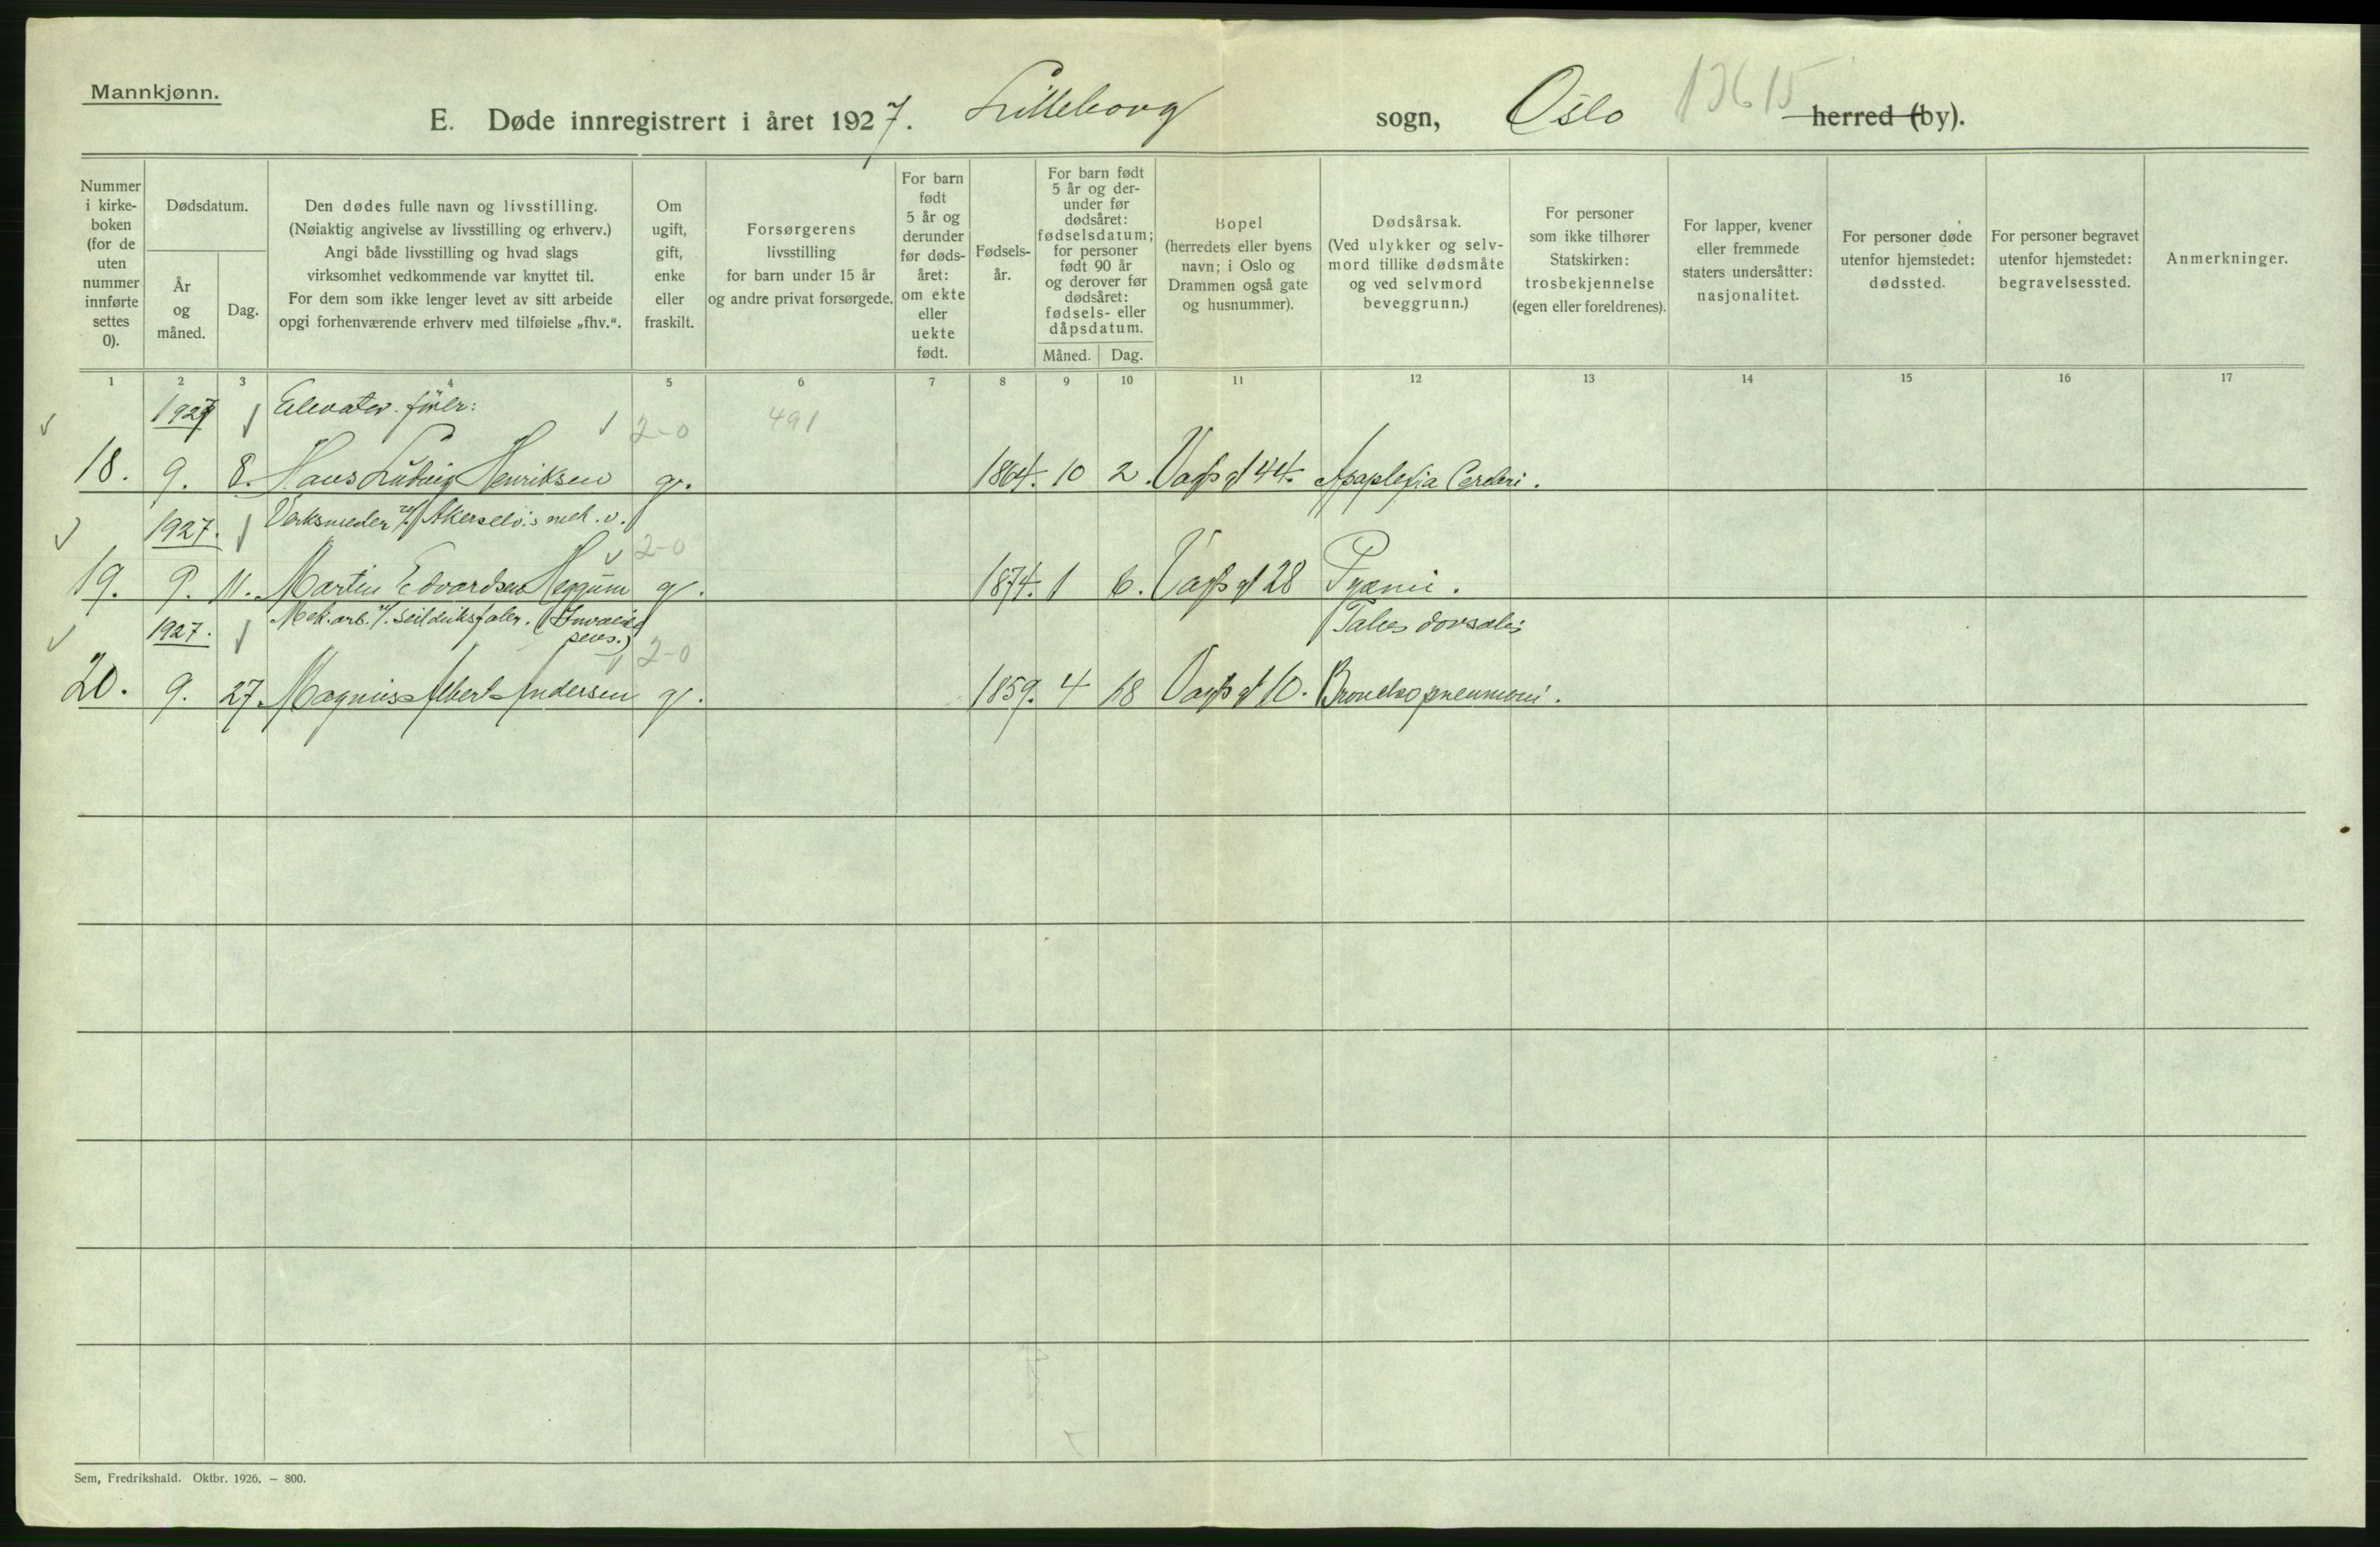 Mannkjønn.
E. Døde innregistrert i året 1927. Lilleborg sogn, Oslo herred (by).
13615
Nummer i kirke-boken (for de uten nummer innførte settes 0).
Dødsdatum.
År og måned.
Dag.
Den dødes fulle navn og livsstilling.
(Nøiaktig angivelse av livsstilling og erhverv.)
Angi både livsstilling og hvad slags
virksomhet vedkommende var knyttet til.
For dem som ikke lenger levet av sitt arbeide
opgi forhenværende erhverv med tilføielse „fhv.“.
Om ugift, gift, enke eller fraskilt.
Forsørgerens
livsstilling
for barn under 15 år
og andre privat forsørgede.
For barn født 5 år og derunder før døds-året: om ekte eller uekte født.
Fødsels-år.
For barn født 5 år og der-under før dødsåret: fødselsdatum; for personer født 90 år og derover før dødsåret: fødsels- eller dåpsdatum.
Måned. Dag.
Bopel
(herredets eller byens
navn; i Oslo og
Drammen også gate
og husnummer).
Dødsårsak.
(Ved ulykker og selv-
mord tillike dødsmåte
og ved selvmord
beveggrunn.)
For personer
som ikke tilhører
Statskirken:
trosbekjennelse
(egen eller foreldrenes).
For lapper, kvener
eller fremmede
staters undersåtter:
nasjonalitet.
For personer døde
utenfor hjemstedet:
dødssted.
For personer begravet
utenfor hjemstedet:
begravelsessted.
Anmerkninger.
1 2 3 4 5 6 7 8 9 10 11 12 13 14 15 16 17
1927 Elevator. fører: 2-0 491
18. 9. 8. Hans Ludvig Henriksen g. 1864. 10 2. gt 44. Apoplexia Cerebri.
1927. Akerselv:s mek. v. 2-0
19. 9. 11. Martin Edvardsen Heggum g. 1874. 1 6. gt 28 Pyæmi.
1927. Mek. arb. v/. Seilduksfabr. (Invalide pens.) 2-0 Tabes dorsalis
20. 9. 27. Magnus Albert Andersen g. 1859. 4 18 gt 10. Bronchopneumoni.
Sem, Fredrikshald. Oktbr. 1926. — 800.